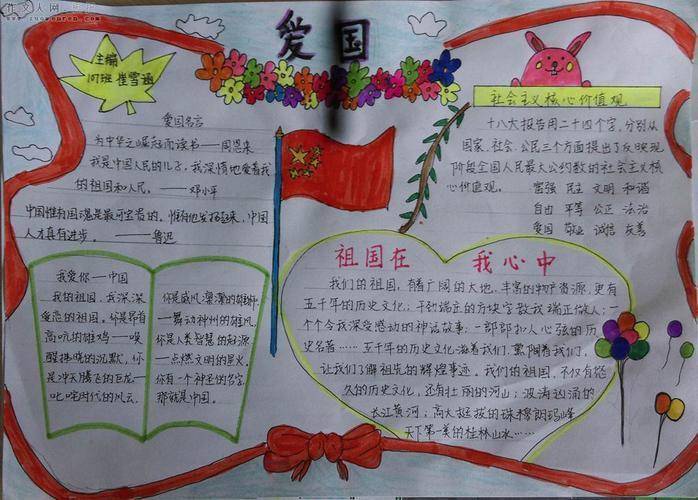 作文人网
www.zuowenren.com
爱国
主编
107班 崔雪涵
爱国名言
为中华之崛起而读书——周恩来
我是中国人民的儿子,我深情地爱着我
的祖国和人民。——邓小平
中国惟有国魂是最可宝贵的,惟有他发扬起来,中国
人才真有进步。——鲁迅
社会主义核心价值观
十八大报告用二十四个字,分别从
国家、社会、公民三个方面提出了反映现
阶段全国人民最大公约数的社会主义核
心价值观。 富强 民主 文明 和谐
自由 平等 公正 法治
爱国 敬业 诚信 友善
我爱你——中国
我的祖国,我深深
爱恋的祖国。你是昂首
高吭的雄鸡——唤
醒拂晓的沉默,你
是冲天腾飞的巨龙——
叱咤时代的风云,
你是威风凛凛的雄狮
——舞动神州的雄风,
你是人类智慧的起源
——点燃文明的星火。
你有一个神圣的名字,
那就是中国。
祖国在 我心中
我们的祖国,有着广阔的大地,丰富的物产资源,更有
五千年的历史文化;干劲端立的方块字教我端正做人;一
个个令我深受感动的神话故事;一部部扣人心弦的历
史名著……五千年的历史文化滋养我们,熏陶着我们,
让我们了解祖先的辉煌事迹。我们的祖国,不仅有悠
久的历史文化,还有壮丽的河山;波涛汹涌的
长江黄河;高大挺拔的珠穆朗玛峰
天下第一美的桂林山水……